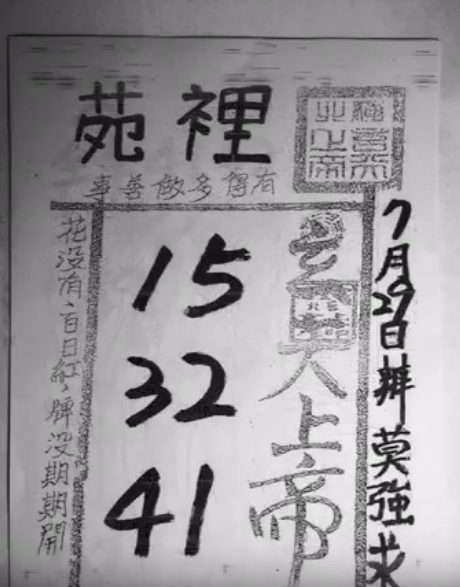 苑裡
有得多做善事
7月29日辦莫強求
玄天上帝
15
32
41
花没有百日紅,牌没期期開